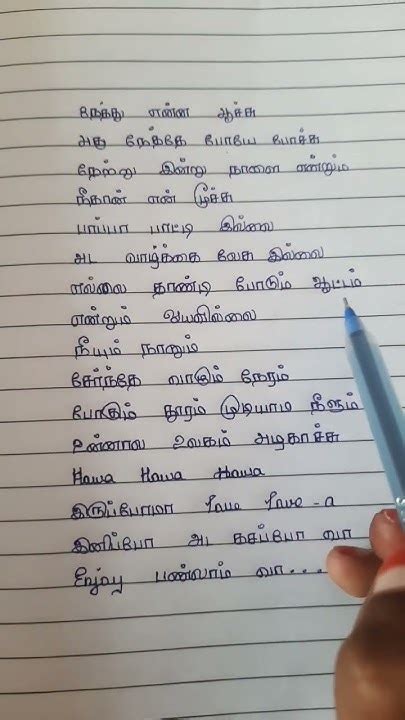 நேத்து என்ன ஆச்சு
அது நேத்தே போயே போச்சு
நேற்று இன்று நாளை என்றும்
நீதான் என் மூச்சு
பாப்பா பாட்டி இல்லை
அட வாழ்க்கை லேசு இல்லை
எல்லை தாண்டி போடும் ஆட்டம்
என்றும் பயனில்லை
நீயும் நானும்
சேர்ந்தே வாகும் நேரம்
போகும் தூரம் முடியாம நீளும்
உன்னால உலகம் அழகாச்சு
Hawa Hawa Hawa
இருப்போமா love love-a
இனிப்போ அட கசப்போ வா
பண்லாம் வா...